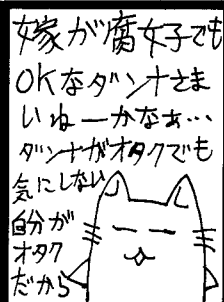 嫁が腐女子でも
OKなダンナさま
いねーかなぁ…
ダンナがオタクでも
気にしない
自分が
オタク
だから